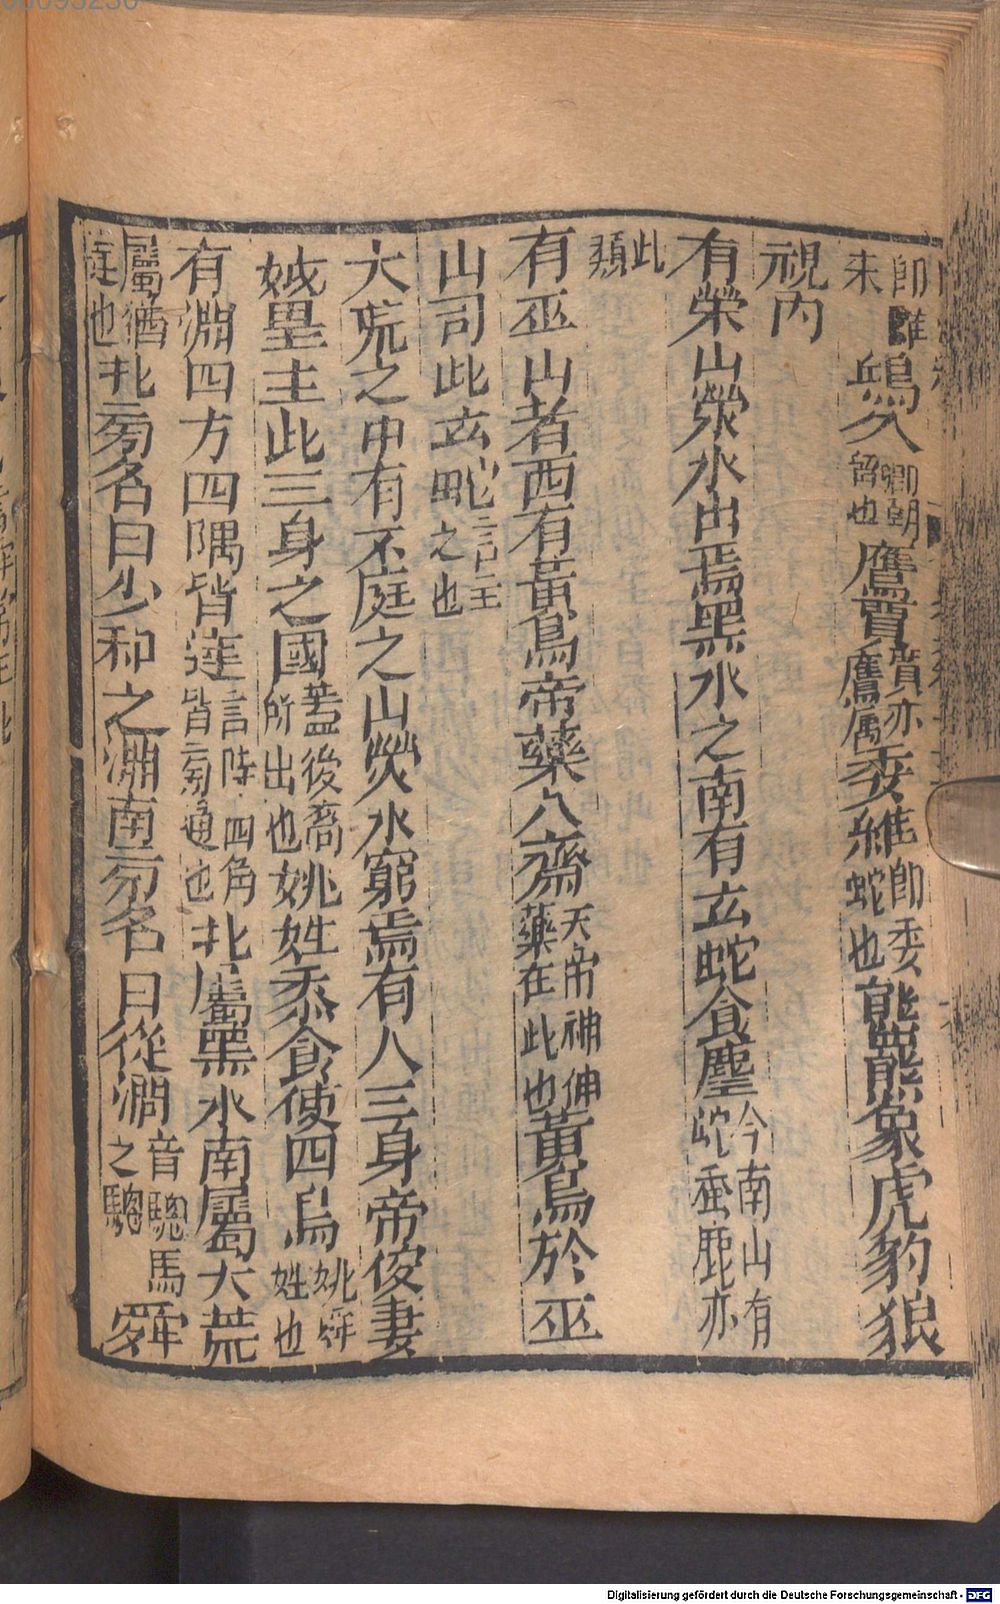 即䳢朱鴟久鵂鶹也鷹賈賈亦鷹屬委維即委蛇也熊羆象虎豹狼
視肉
有榮山滎水出焉黑水之南有玄蛇食麈今南山有蚺蛇吞鹿亦
此類
有巫山者西有黃鳥帝藥八齋天帝神仙藥在此也黃鳥於巫
山司此玄蛇言主之也
大荒之中有不庭之山滎水窮焉有人三身帝俊妻
娥皇生此三身之國蓋後裔所出也姚姓黍食使四鳥姚舜姓也
有淵四方四隅皆達言淵四角皆旁通也北屬黑水南屬大荒
屬猶連也北旁名曰少和之淵南旁名曰從淵音驄馬之驄舜
Digitalisierung gefördert durch die Deutsche Forschungsgemeinschaft - DFG